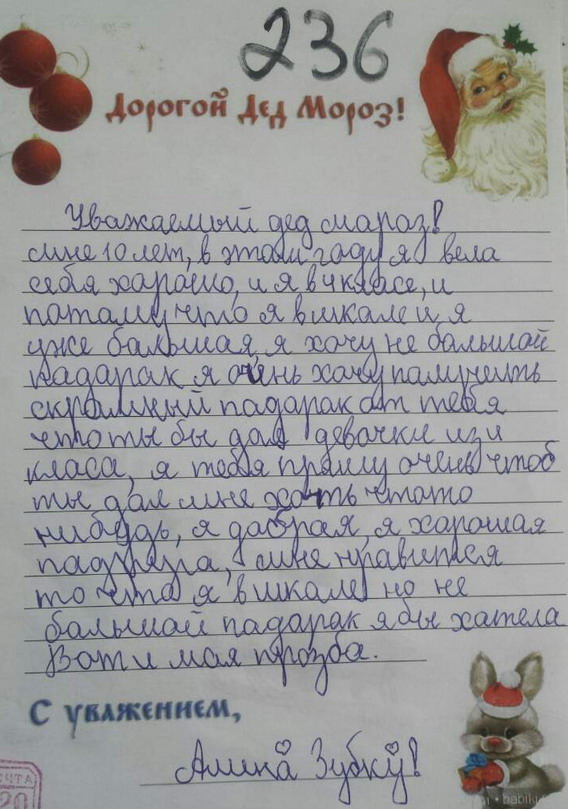 236
Дорогой Дед Мороз!
Уважаемый дед мараз!
мне 10 лет, в этам гаду я вела
себя харашо, и я в 4 класе, и
патаму что я в шкале и я
уже бальшая, я хачу не бальшой
падарак я очень хачу палучить
скромный падарак от тебя
что ты бы дал девачки из 4
класа, я тебя прашу очень чтоб
ты дал мне хоть чтото
нибудь, я добрая, я харошая
падруга, мне нравится
то что я в шкале но не
бальшой падарак я бы хатела
Вот и моя прозба.
С уважением,
Алина Зубку!
ЧТА
20
babiki